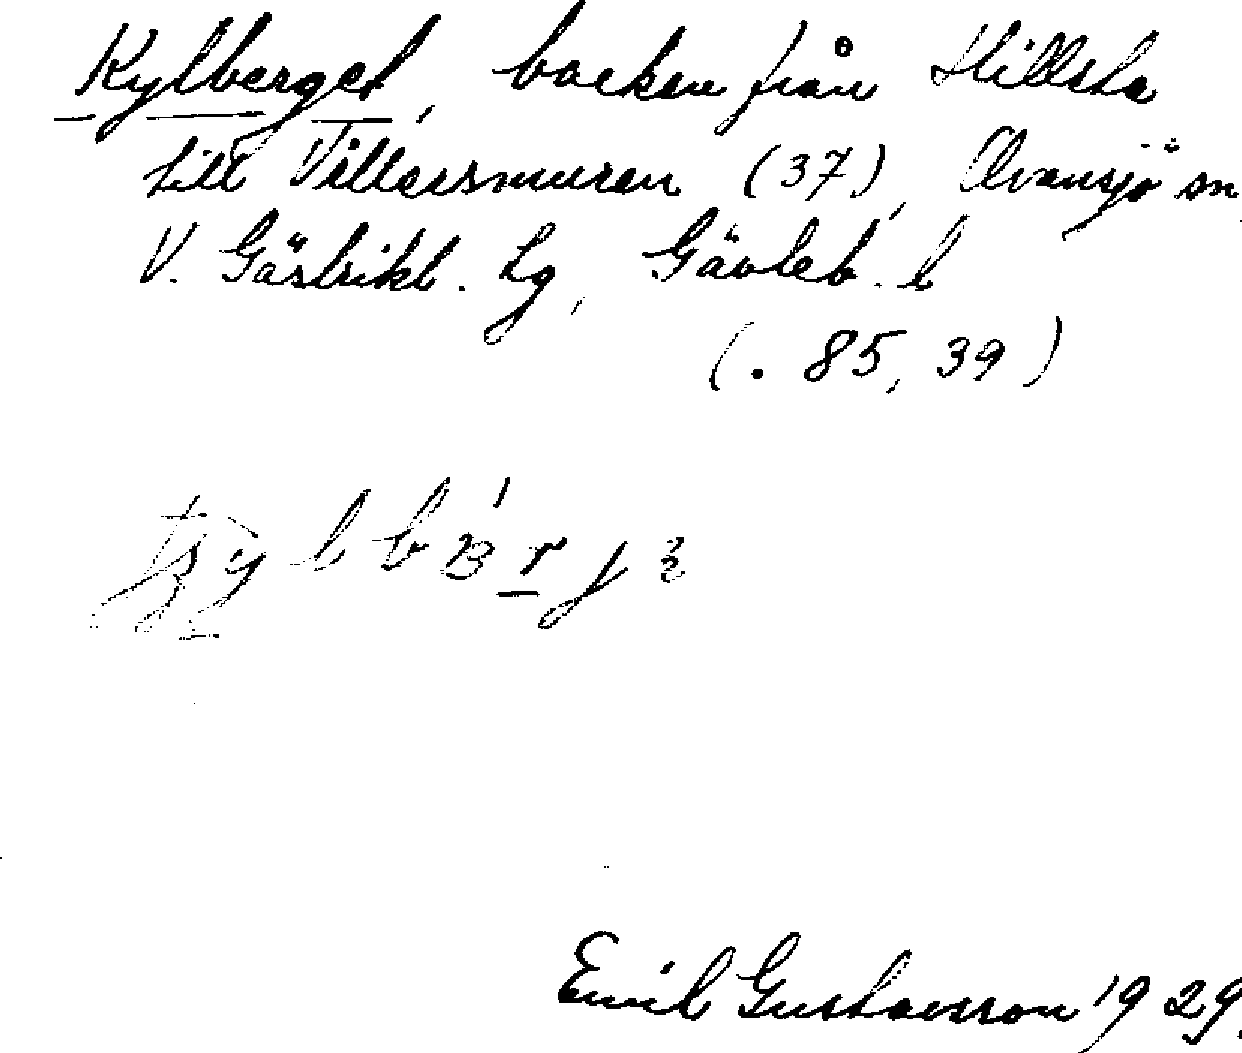 Kylberget, backen från Hillsta
till Villersmuren (37), Ovansjö sn,
V. Gästrikl. hg, Gävleb. l
(. 85, 39)
Emil Gustavsson 1929.